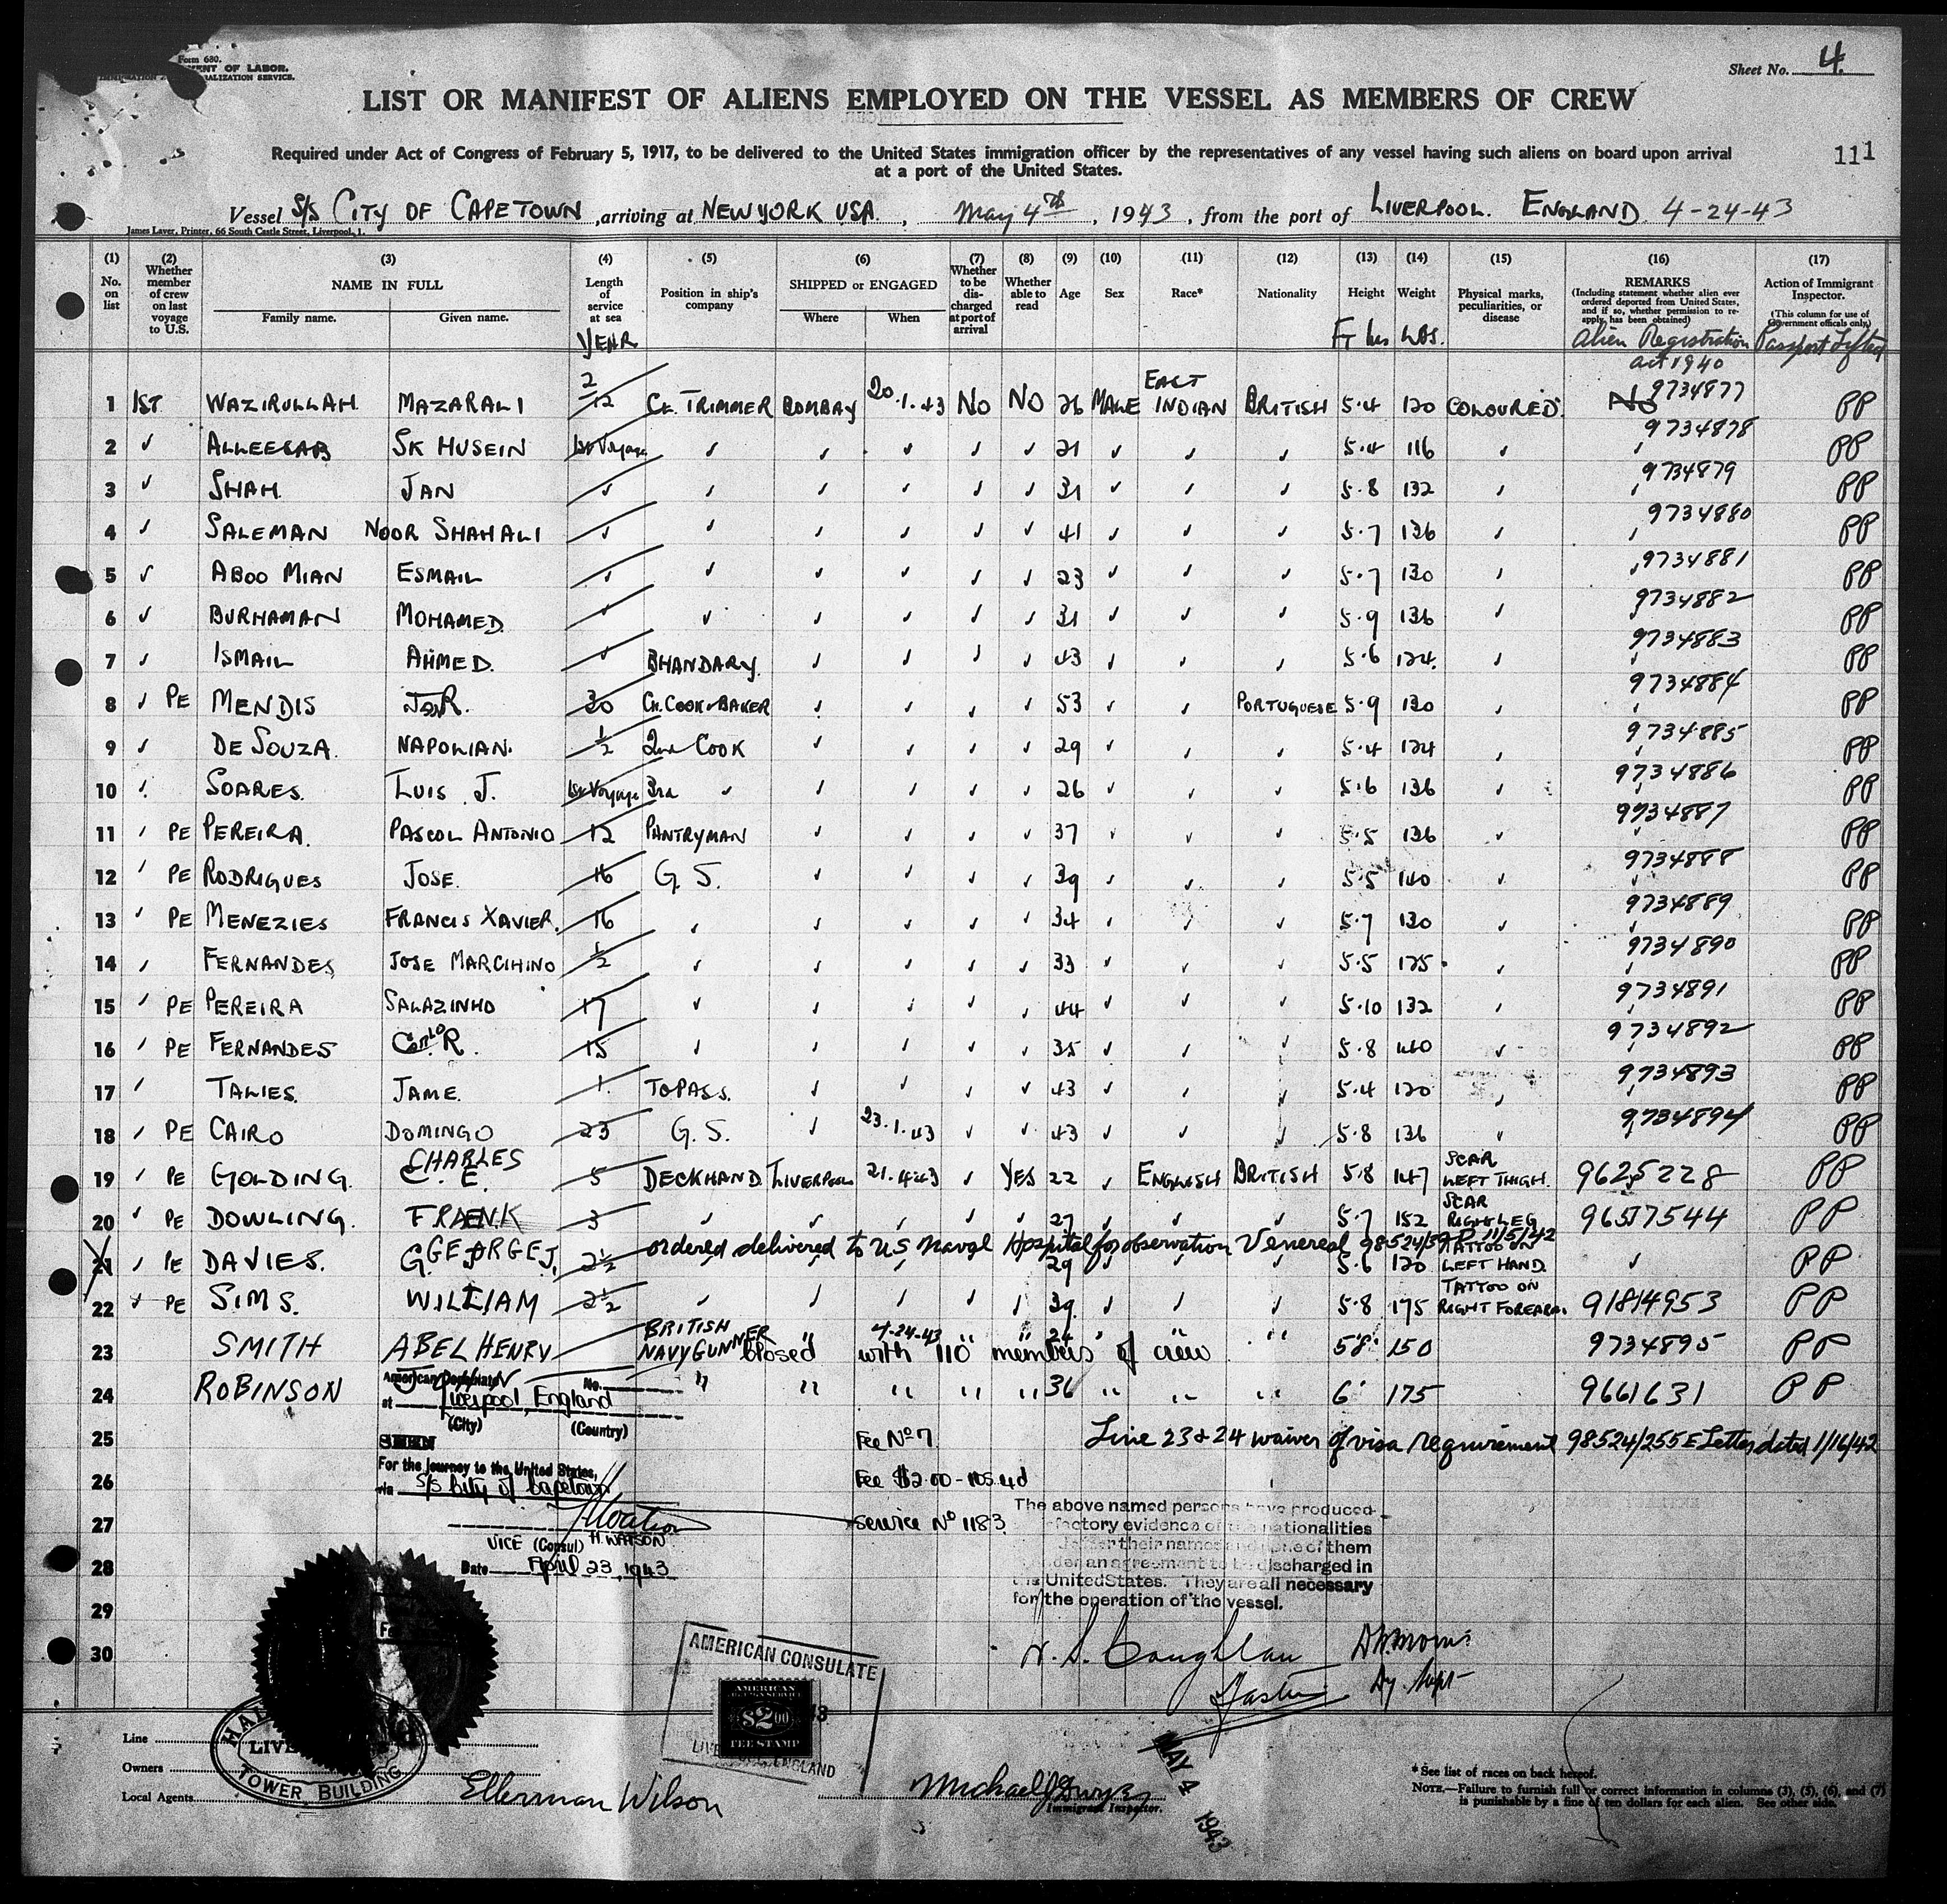 Form 680.
MENT OF LABOR.
IMMIGRATION ALIZATION SERVICE.
Sheet No. 4.
LIST OR MANIFEST OF ALIENS EMPLOYED ON THE VESSEL AS MEMBERS OF CREW
Required under Act of Congress of February 5, 1917, to be delivered to the United States immigration officer by the representatives of any vessel having such aliens on board upon arrival
at a port of the United States.
111
Vessel S/S CITY OF CAPETOWN, arriving at NEW YORK USA., May 4th, 1943, from the port of LIVERPOOL. ENGLAND 4-24-43
James Laver, Printer, 66 South Castle Street, Liverpool, 1.
(1) No. on list
(2) Whether member of crew on last voyage to U.S.
(3) NAME IN FULL Family name. Given name.
(4) Length of service at sea YEAR
(5) Position in ship's company
(6) SHIPPED or ENGAGED Where When
(7) Whether to be discharged at port of arrival
(8) Whether able to read
(9) Age
(10) Sex
(11) Race*
(12) Nationality
(13) Height Ft Ins
(14) Weight LBS.
(15) Physical marks, peculiarities, or disease
(16) REMARKS (Including statement whether alien ever ordered deported from United States, and if so, whether permission to reapply has been obtained) Alien Registration act 1940
(17) Action of Immigrant Inspector. (This column for use of Government officials only.) Passport Lifted
1 1ST WAZIRULLAH MAZARALI 2/12 CL. TRIMMER BOMBAY 20.1.43 NO NO 26 MALE EAST INDIAN BRITISH 5.4 120 COLOURED. No 9734877 PP
2 ✓ ALLEESAB SK HUSEIN 1st Voyage ✓ ✓ ✓ ✓ ✓ 21 ✓ ✓ ✓ 5.4 116 ✓ 9734878 PP
3 ✓ SHAH. JAN ✓ ✓ ✓ ✓ ✓ ✓ 31 ✓ ✓ ✓ 5.8 132 ✓ 9734879 PP
4 ✓ SALEMAN NOOR SHAHALI ✓ ✓ ✓ ✓ ✓ ✓ 41 ✓ ✓ ✓ 5.7 136 ✓ 9734880 PP
5 ✓ ABOO MIAN ESMAIL ✓ ✓ ✓ ✓ ✓ ✓ 23 ✓ ✓ ✓ 5.7 130 ✓ 9734881 PP
6 ✓ BURHAMAN MOHAMED. ✓ ✓ ✓ ✓ ✓ ✓ 31 ✓ ✓ ✓ 5.9 136 ✓ 9734882 PP
7 ✓ ISMAIL AHMED. ✓ BHANDARY. ✓ ✓ ✓ ✓ 43 ✓ ✓ ✓ 5.6 124. ✓ 9734883 PP
8 ✓ PE MENDIS R. 30 CH. COOK & BAKER ✓ ✓ ✓ ✓ 53 ✓ ✓ PORTUGUESE 5.9 130 ✓ 9734884 PP
9 ✓ DE SOUZA. NAPOLIAN. 1/2 2nd COOK ✓ ✓ ✓ ✓ 29 ✓ ✓ ✓ 5.4 124 ✓ 9734885 PP
10 ✓ SOARES. LUIS J. 1st Voyage 3rd ✓ ✓ ✓ ✓ ✓ 26 ✓ ✓ ✓ 5.6 136 ✓ 9734886 PP
11 ✓ PE PEREIRA. PASCOL ANTONIO 12 PANTRYMAN ✓ ✓ ✓ ✓ 37 ✓ ✓ ✓ 5.5 136 ✓ 9734887 PP
12 ✓ PE RODRIGUES JOSE. 16 G. S. ✓ ✓ ✓ ✓ 39 ✓ ✓ ✓ 5.5 140 ✓ 9734888 PP
13 ✓ PE MENEZIES FRANCIS XAVIER. 16 ✓ ✓ ✓ ✓ ✓ 34 ✓ ✓ ✓ 5.7 130 ✓ 9734889 PP
14 ✓ FERNANDES JOSE MARCIHINO 1/2 ✓ ✓ ✓ ✓ ✓ 33 ✓ ✓ ✓ 5.5 125. ✓ 9734890 PP
15 ✓ PE PEREIRA SALAZINHO 17 ✓ ✓ ✓ ✓ ✓ 44 ✓ ✓ ✓ 5.10 132 ✓ 9734891 PP
16 ✓ PE FERNANDES R. 15 ✓ ✓ ✓ ✓ ✓ 35 ✓ ✓ ✓ 5.8 140 ✓ 9734892 PP
17 ✓ TAWIES. JAME. 1 TOPASS. ✓ ✓ ✓ ✓ 43 ✓ ✓ ✓ 5.4 120 ✓ 9734893 PP
18 ✓ PE CAIRO DOMINGO 23 G. S. ✓ 23.1.43 ✓ ✓ 43 ✓ ✓ ✓ 5.8 136 ✓ 9734894 PP
19 ✓ PE GOLDING. CHARLES C. E. 5 DECKHAND LIVERPOOL 21.4.43 ✓ YES 22 ✓ ENGLISH BRITISH 5.8 147 SCAR LEFT THIGH. 9625228 PP
20 ✓ PE DOWLING. FRANK 3 ✓ ✓ ✓ ✓ ✓ 27 ✓ ✓ ✓ 5.7 152 SCAR RIGHT LEG 9657544 PP
ordered delivered to U.S. Naval Hospital for observation Venereal 11/5/42
21 ✓ PE DAVIES. GEORGE J. 2½ 29 5.6 120 TATTOO ON LEFT HAND. ✓ PP
22 ✓ PE SIMS. WILLIAM 2½ ✓ ✓ ✓ ✓ ✓ 39. ✓ ✓ ✓ 5.8 175 TATTOO ON RIGHT FOREARM. 91814953 PP
23 SMITH ABEL HENRY BRITISH NAVY GUNNER " 4-24-43 " " 24 " " " 5'8" 150 9734895 PP
Closed with 110 members of crew
24 ROBINSON " " " " " 36 " " " 6' 175 9661631 PP
American
No.
at Liverpool, England
(City) (Country)
25 SEEN Fee No 7 Line 23 & 24 waiver of visa requirement 98524/255E Letter dated 1/16/42
For the journey to the United States,
26 via S/S City of Capetown Fee $2.00 -
27 Service No 1183
H. WATSON
VICE (Consul)
28 Date April 23, 1943
29
30
The above named persons have produced
factory evidence of the nationalities
their names and none of them
under an agreement to be discharged in
the United States. They are all necessary
for the operation of the vessel.
Coughlan
Master
AMERICAN CONSULATE
AMERICAN
$2.00
FEE STAMP
LIVERPOOL, ENGLAND
Line
Owners
Local Agents
TOWER BUILDING
Ellerman Wilson
Michael J. Dwyer
Immigrant Inspector.
MAY 4 1943
* See list of races on back hereof.
NOTE.—Failure to furnish full or correct information in columns (3), (5), (6), and (7)
is punishable by a fine of ten dollars for each alien. See other side.